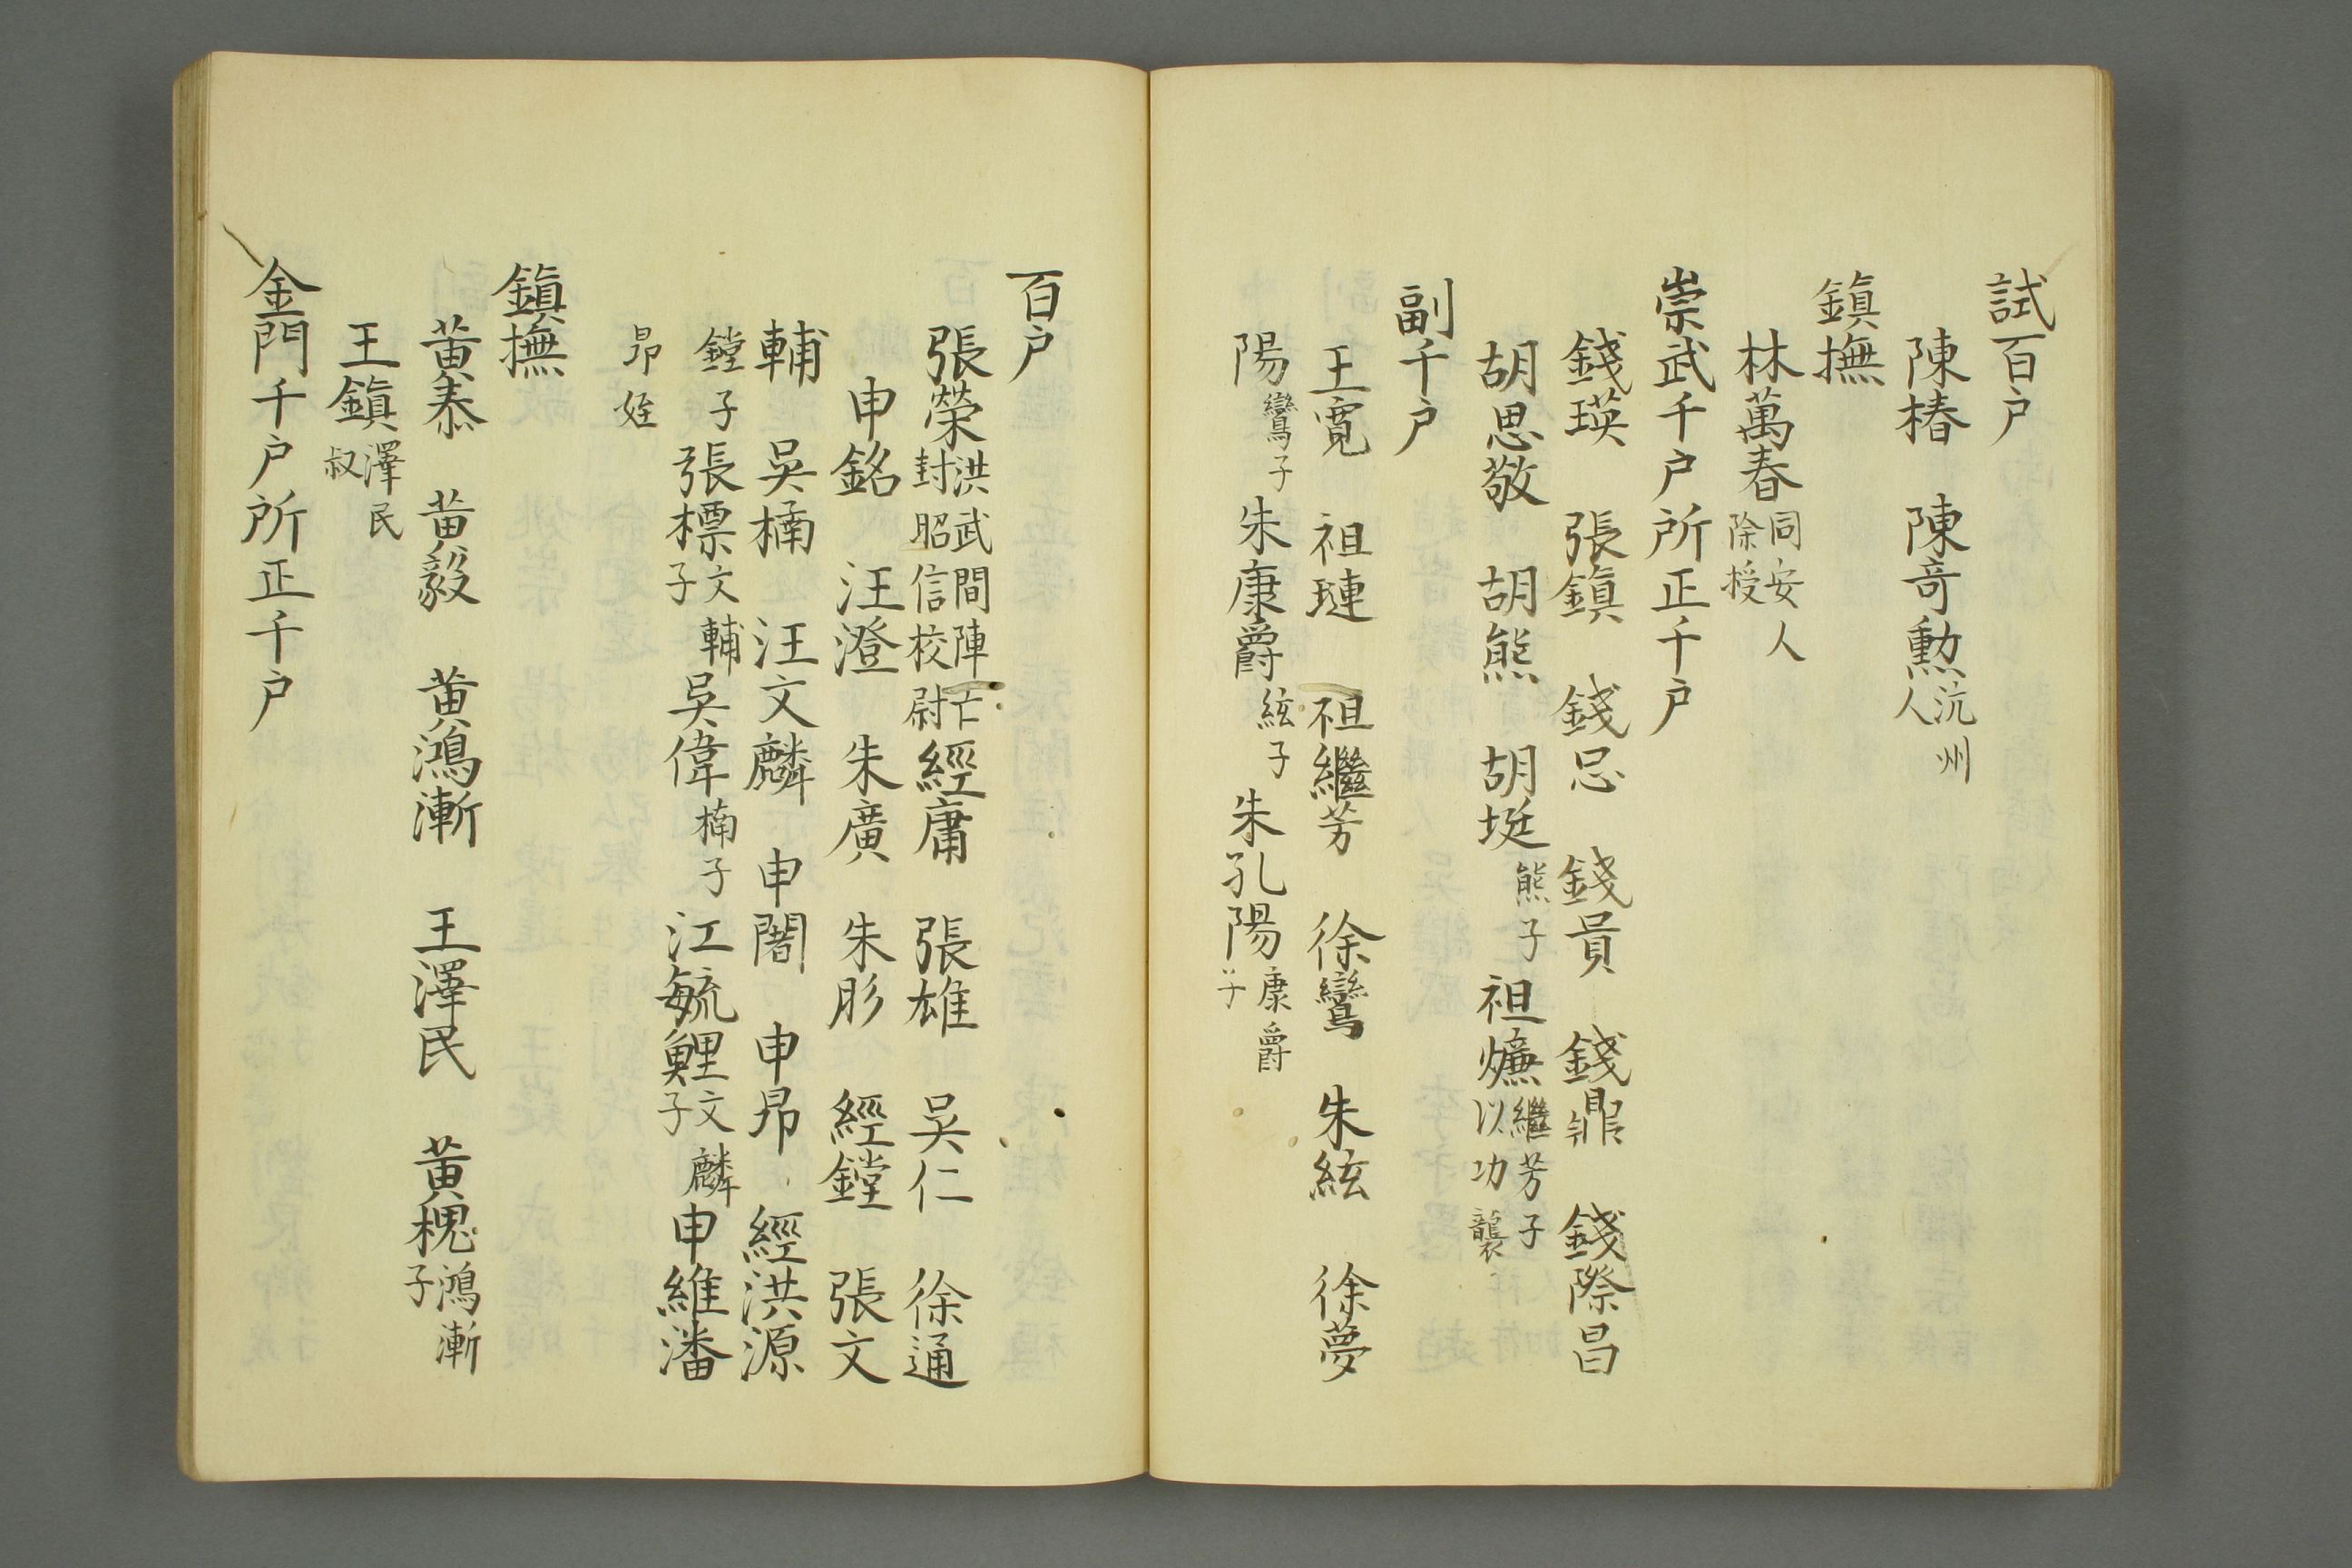 試百户
陳椿　陳竒勲沆州人
鎮撫
林萬春同安人除授
崇武千户所正千户
錢瑛　張鎮　錢忌　錢貟　錢鼎　錢際昌
胡思敬　胡熊　胡挺熊子祖㷩繼芳子以功襲
副千户
王寛　祖璉　祖繼芳　徐鸞　朱絃　徐夢
陽鸞子朱康爵絃子朱孔陽康爵子
百户
張榮洪武間陣亡封昭信校尉經庸　張雄　吳仁　徐通
申銘　汪澄　朱廣　朱肜　經鏜　張文
輔　吳楠　汪文麟　申闇　申昂　經洪源
鏜子張標文輔子吳偉楠子江毓鯉文麟子申維潘
昂姪
鎮撫
黄泰　黄毅　黄鴻漸　王澤民　黄槐鴻漸子
王鎮澤民叔
金門千户所正千户